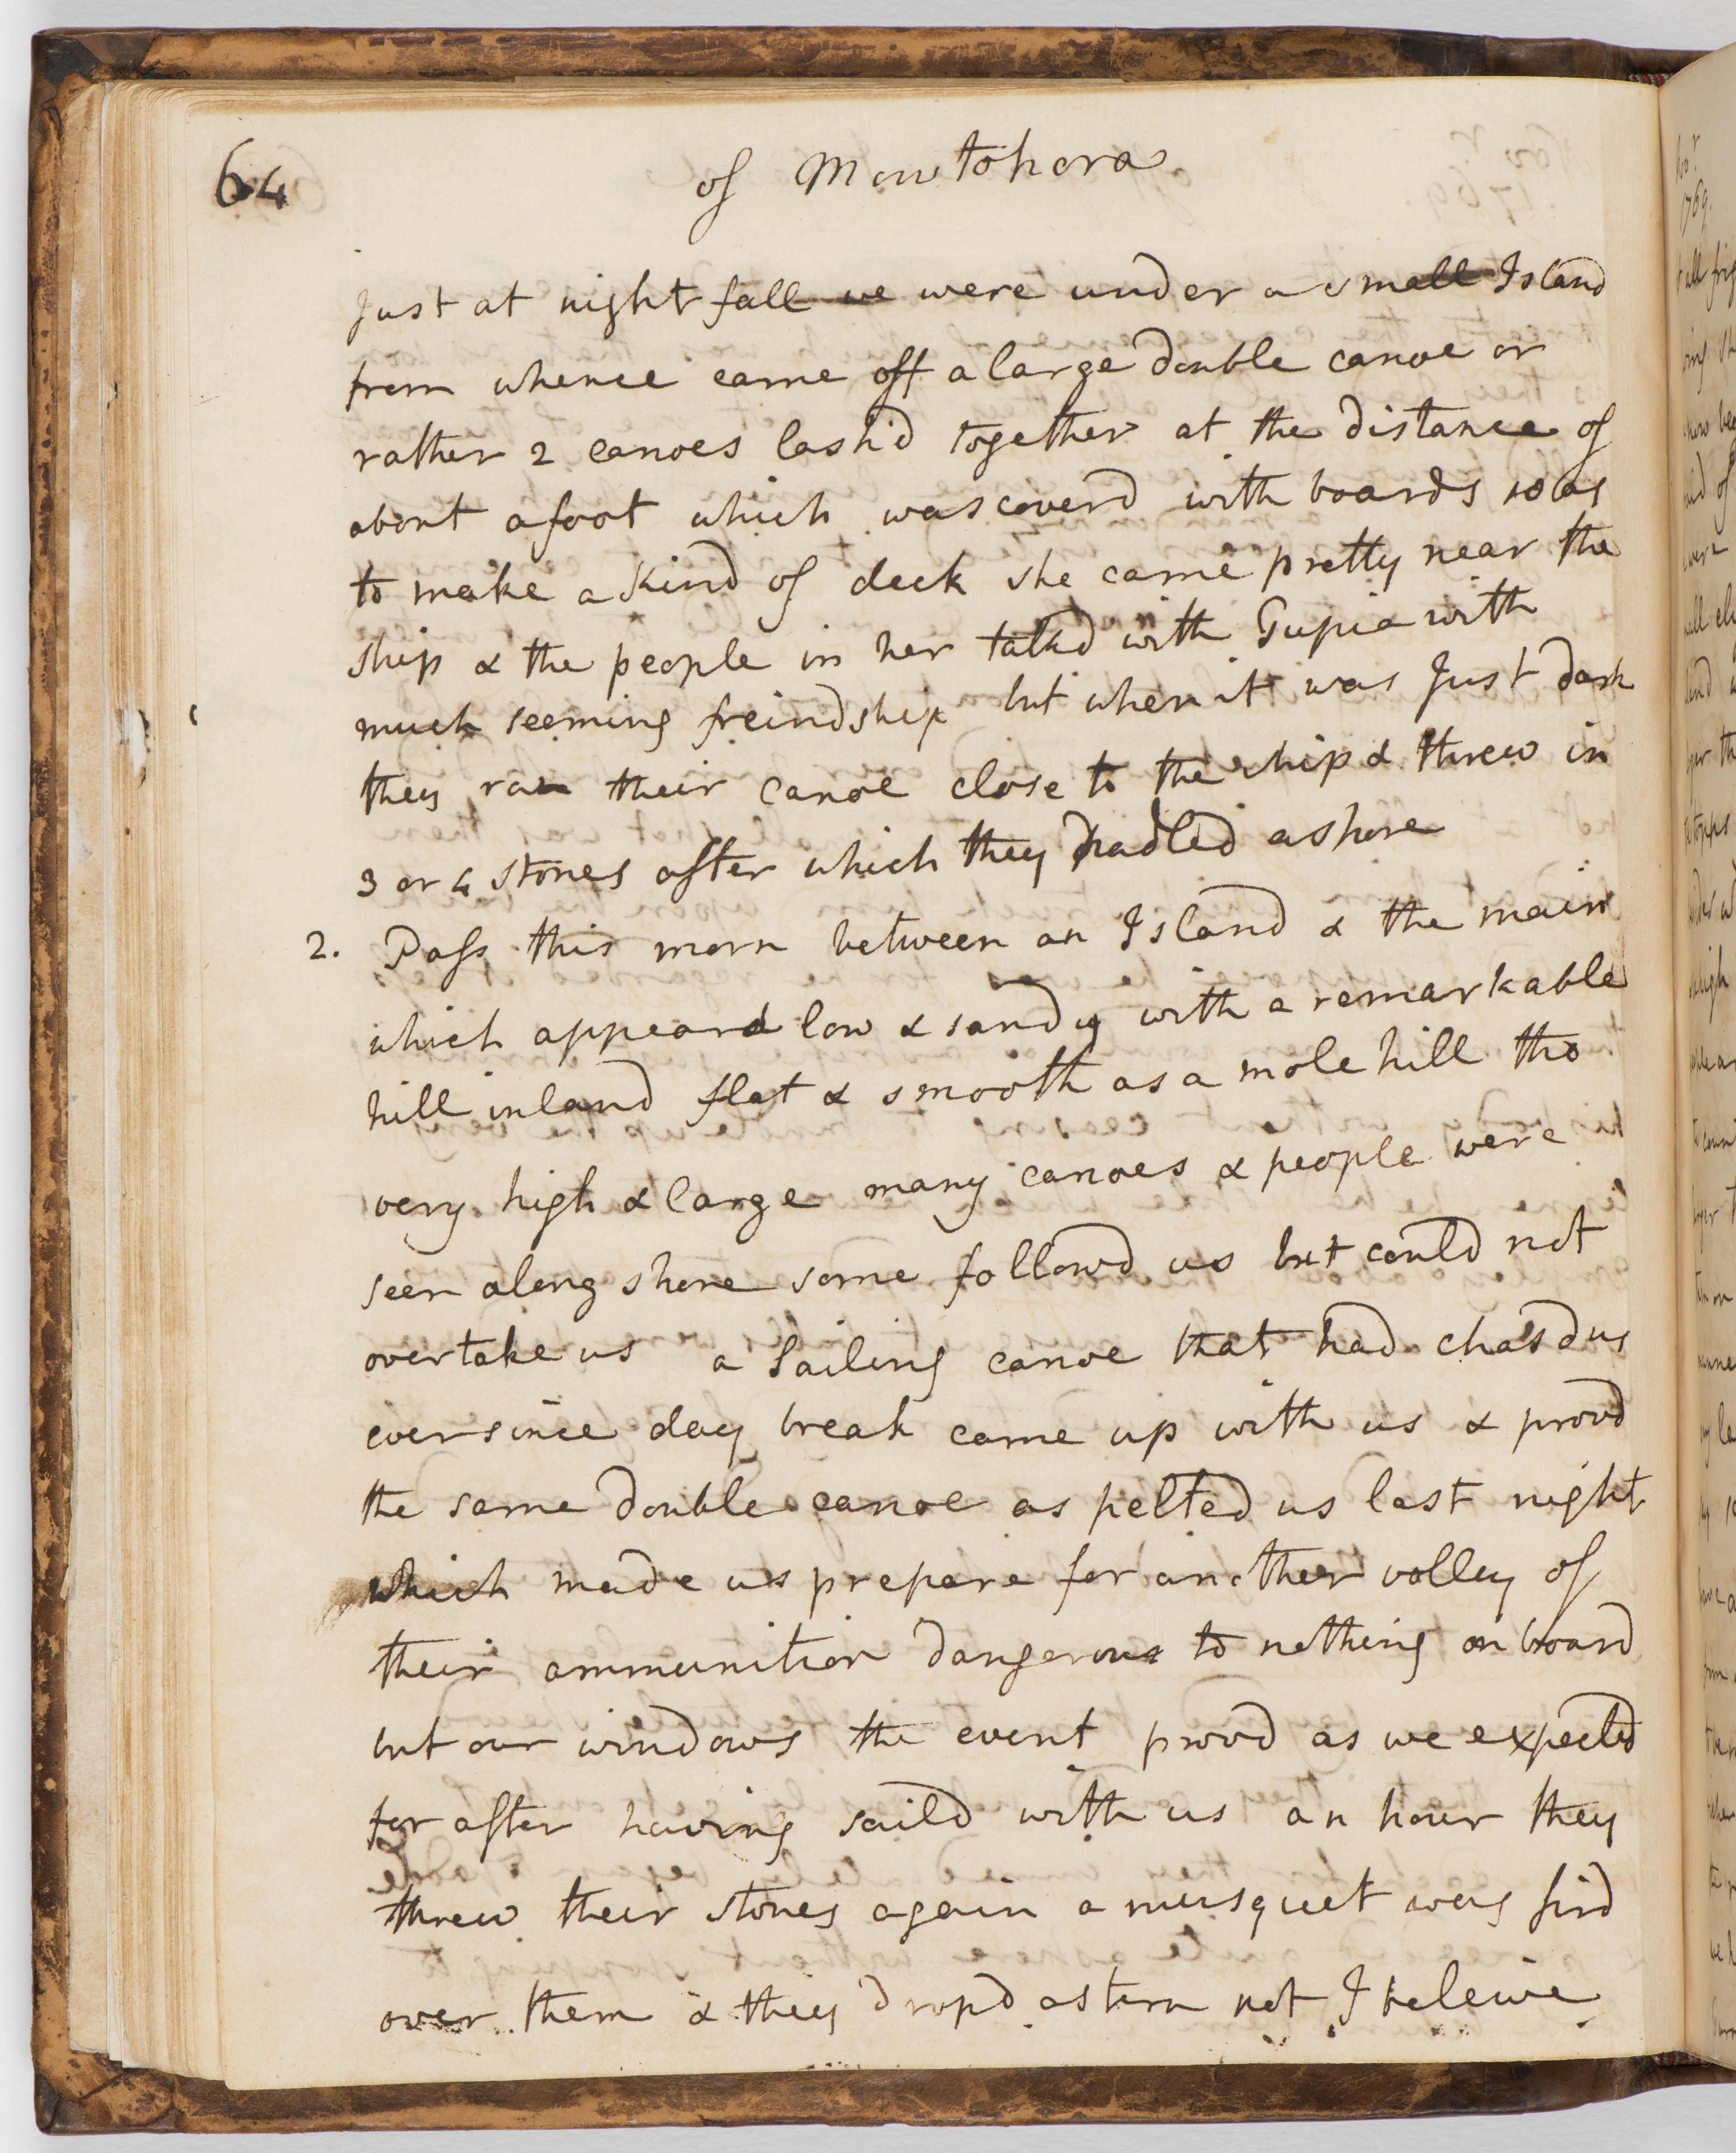 64
of Mowtohora
Just at night fall we were under a small Island
from whence came off a large double canoe or
rather 2 canoes lashd together at the distance of
about a foot which was coverd with boards so as
to make a kind of deck she came pretty near the
ship & the people in her talkd with Tupia with
much seeming freindship but when it was Just dark
they ran their canoe close to the ship & threw in
3 or 4 stones after which they padled ashore
2. Pass this morn between an Island & the main
which appeard low & sandy with a remarkable
hill inland flat & smooth as a mole hill tho
very high & large many canoes & people were
seen along shore some followd us but could not
overtake us a Sailing canoe that had chasd us
ever since day break came up with us & provd
the same double canoe as pelted us last night
which made us prepare for another volley of
their ammunition dangerous to nothing on board
but our windows the event provd as we expected
for after having saild with us an hour they
threw their stones again a musquet was fird
over them & they dropd astern not I beleive